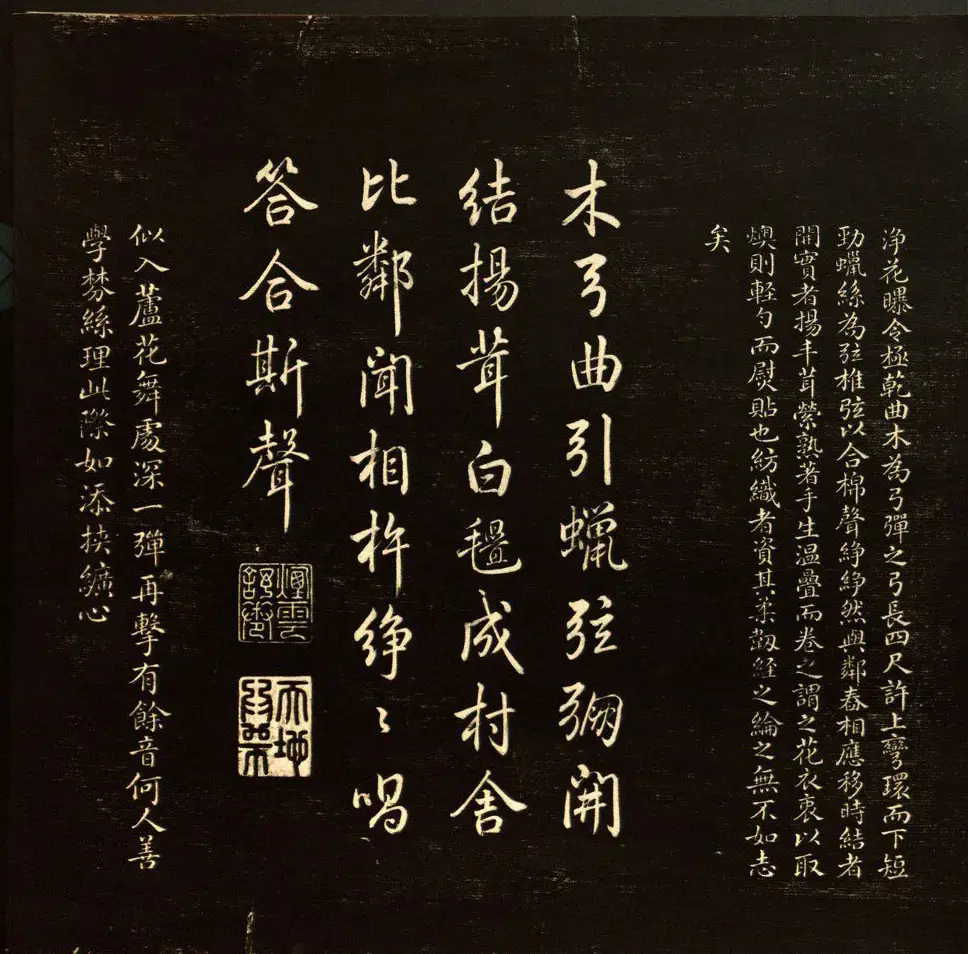 淨花曝令極乾曲木為弓彈之弓長四尺許上彎環而下短
勁蠟絲為弦椎弦以合棉聲䋫䋫然與鄰舂相應移時結者
開實者揚丰茸縈熟著手生溫疊而卷之謂之花衣衷以取
燠則輕勻而熨貼也紡織者資其柔韌經之綸之無不如志
矣
木弓曲引蠟弦弸開
結揚茸白氎成村舍
比鄰聞相杵䋫〻唱
答合斯聲
似入蘆花舞處深一彈再擊有餘音何人善
學棼絲理此際如添挾纊心